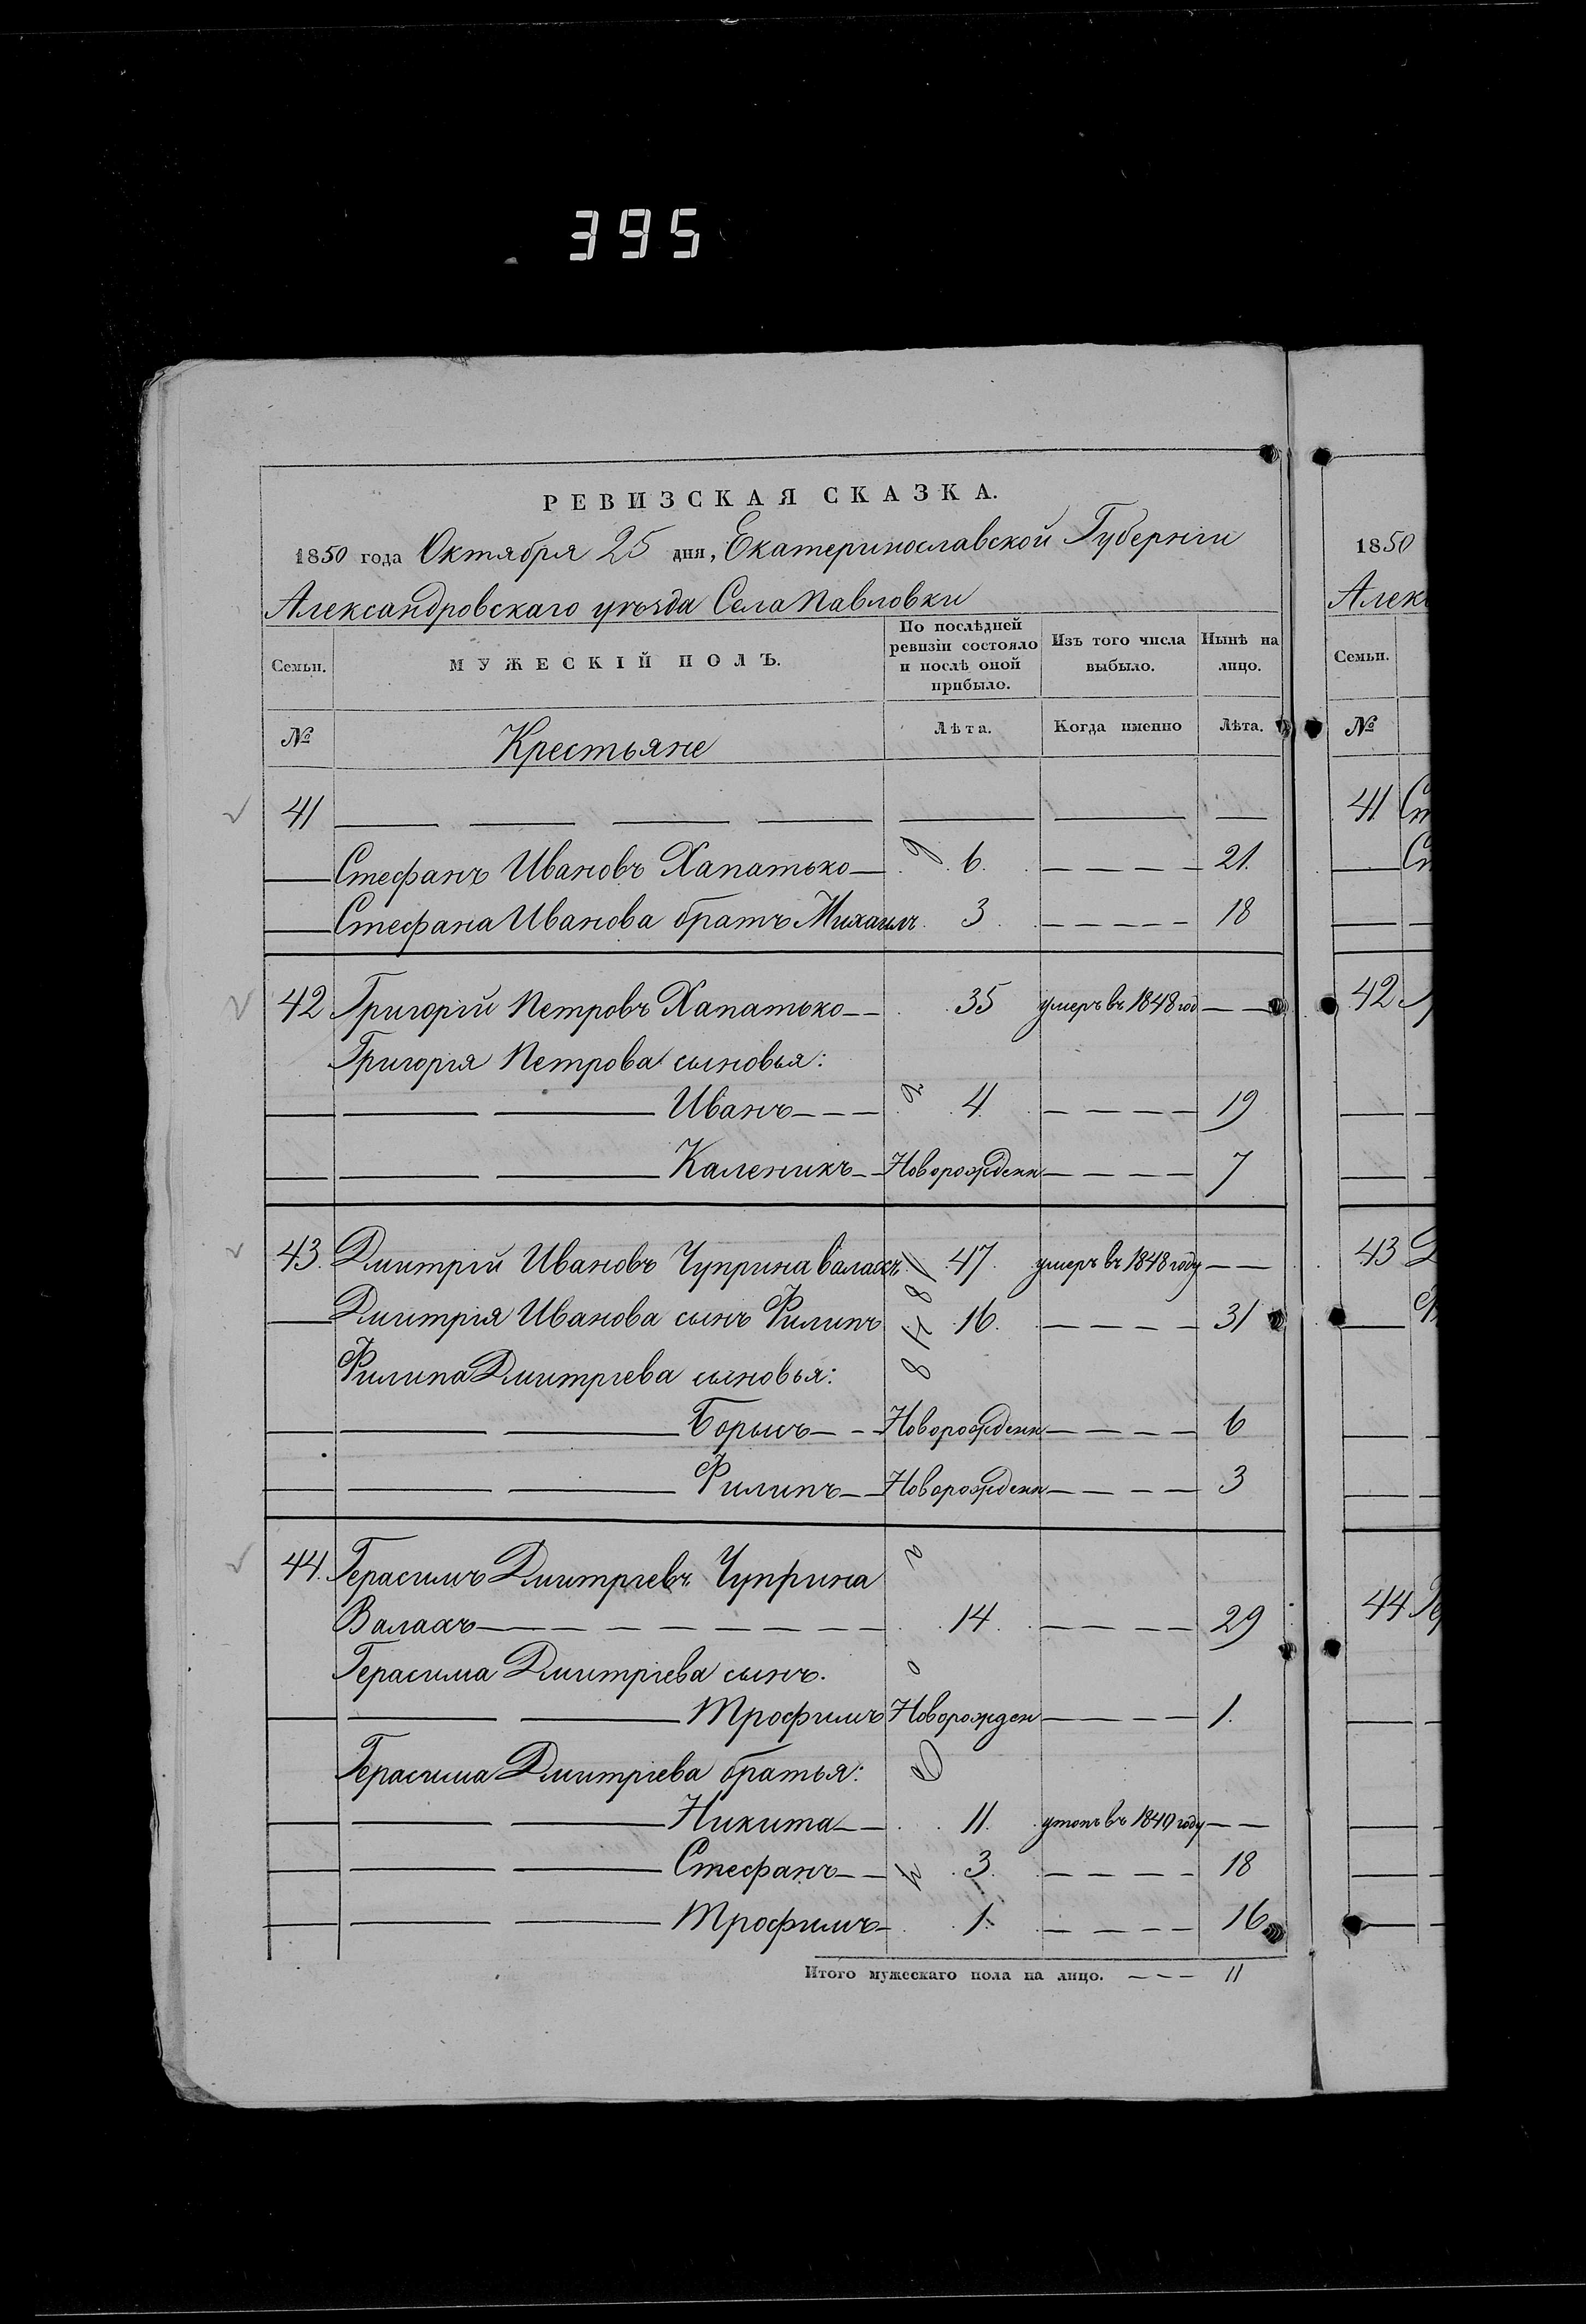 395
РЕВИЗСКАЯ СКАЗКА.
1850 года Октября 25 дня, Екатеринославской Губерніи
Александровскаго уѣзда Села Павловки
Семьи. МУЖЕСКІЙ ПОЛЪ. По послѣдней ревизіи состояло и послѣ оной прибыло. Изъ того числа выбыло. Нынѣ на лицо.
№ Крестьяне Лѣта. Когда именно Лѣта.
41
Стефанъ Ивановъ Хапатько 6. 21.
Стефана Иванова братъ Михаилъ 3 18
42 Григорій Петровъ Хапатько 35 умеръ въ 1848 год
Григорія Петрова сыновья:
Иванъ 4 19
Каленикъ Новорожденн 7
43. Дмитрій Ивановъ Чуприна Валахъ 47. умеръ въ 1848 году
Дмитрія Иванова сынъ Филипъ 16. 31
Филипа Дмитріева сыновья:
Борысъ Новорожденн 6
Филипъ Новорожденн 3
44. Герасимъ Дмитріевъ Чуприна
Валахъ 14. 29
Герасима Дмитріева сынъ.
Трофимъ Новорожден 1.
Герасима Дмитріева братья:
Никита 11. утопъ въ 1840 году
Стефанъ 3. 18
Трофимъ 1. 16
Итого мужескаго пола на лицо. 11
1850
Алек
Семьи.
№
41 Ст
Ст
42
43 Д
44 Ге